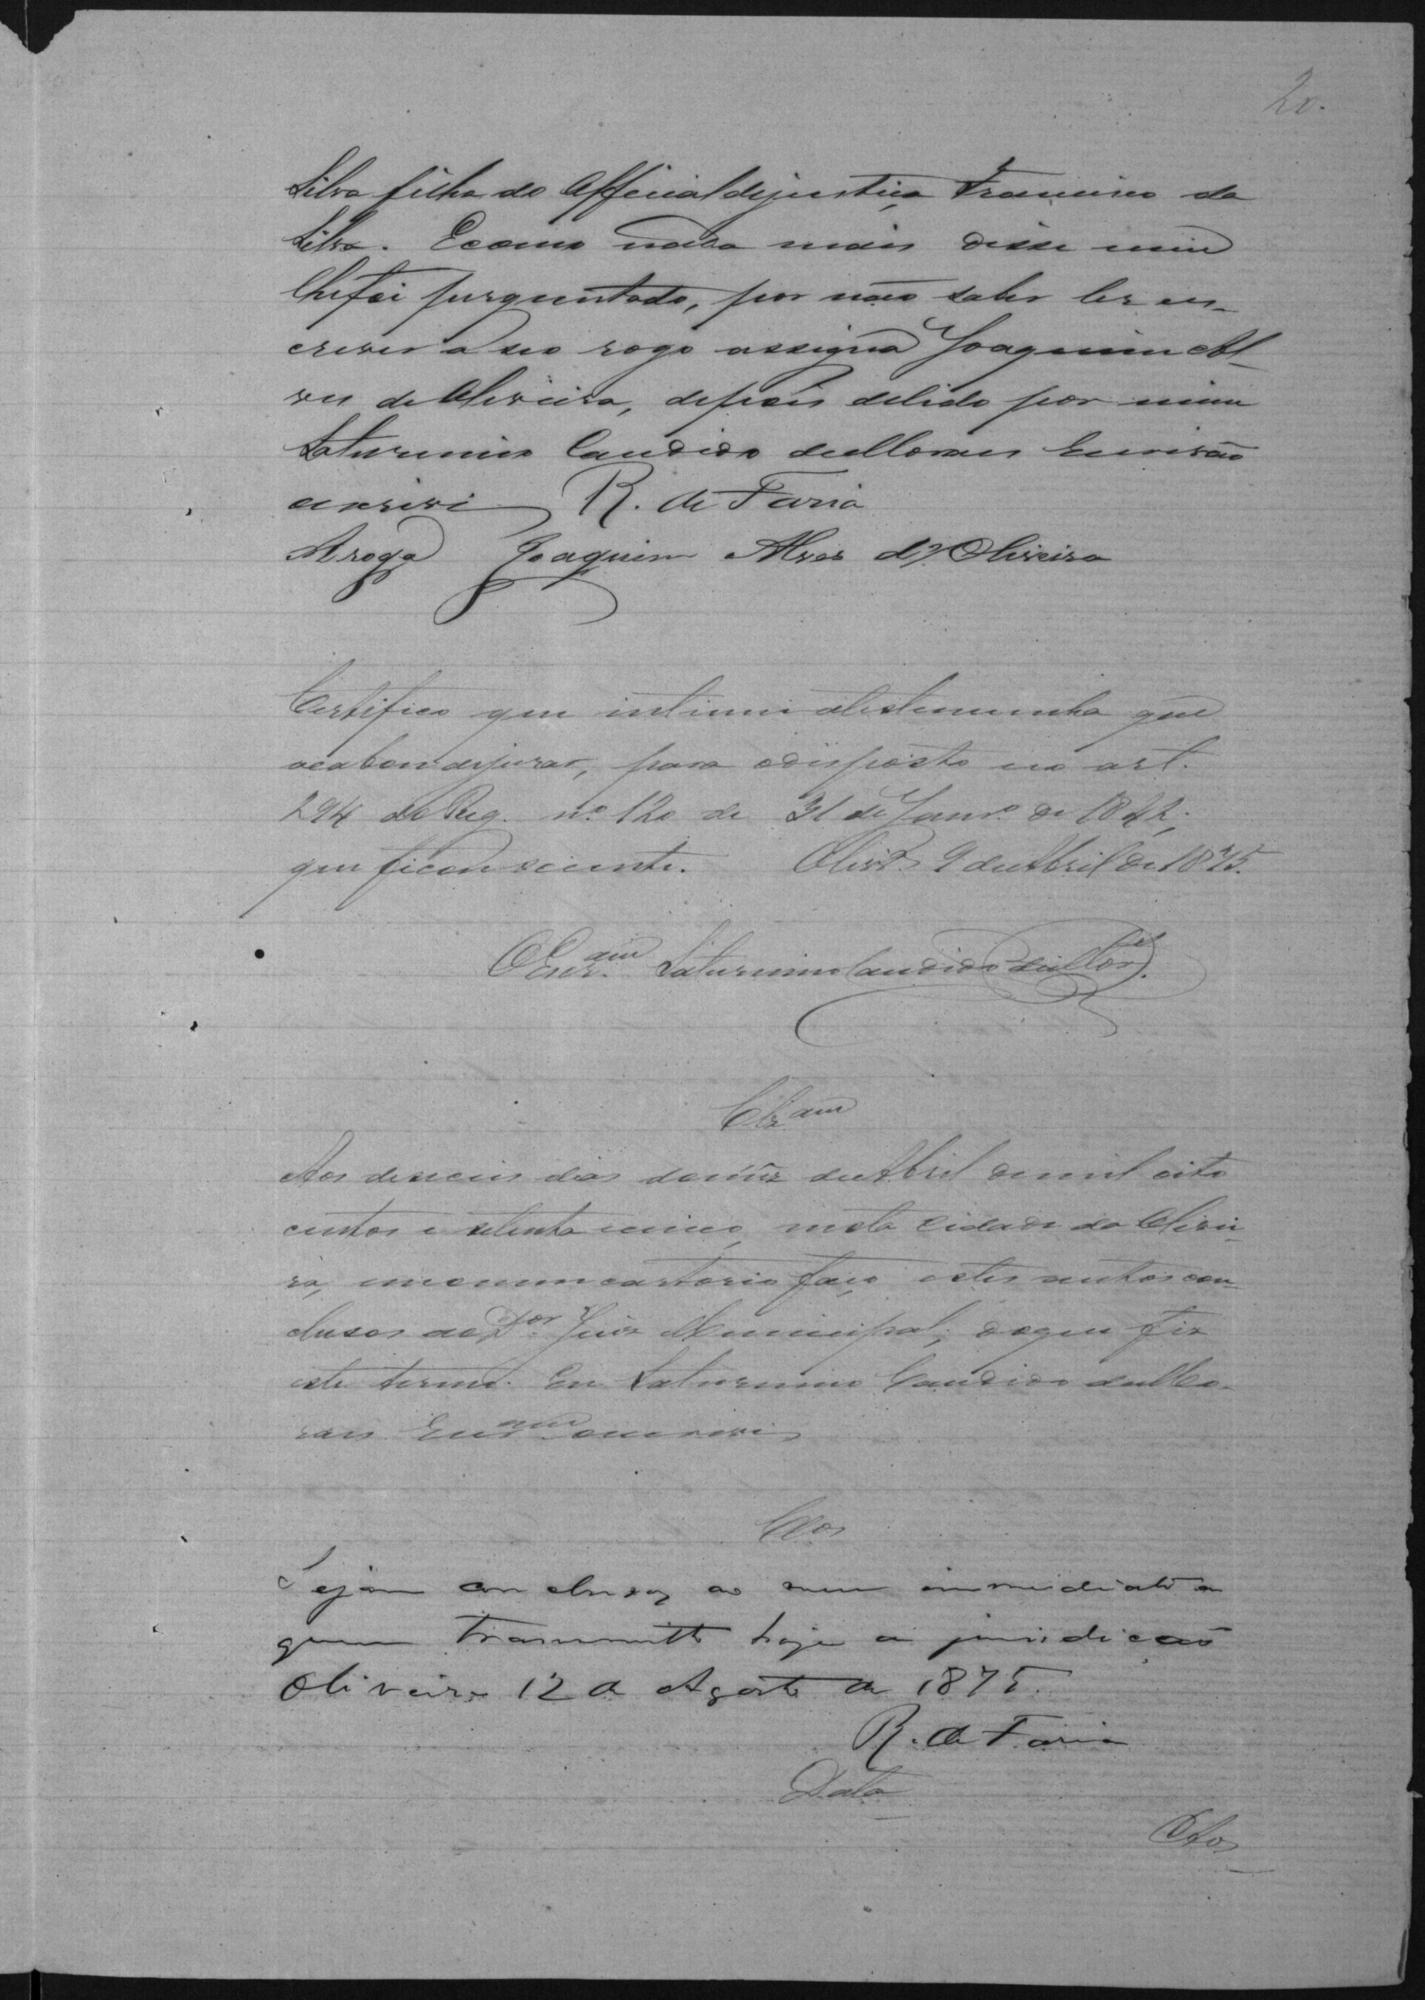 20.
Silva filho do Official dejustiça Francisco da
Silva. Ecomo nada mais disse nem
lhefoi perguntado, por não saber ler es-
crever a seo rogo assigna Joaquim Al-
ves de Oliveira, depois delido por mim
Saturnino Candido deMoraes Escrivão
escrivi R. de Faria
Arogo Joaquim Alves d'Oliveira
Certifico que intimei atestemunha que
acabou dejurar, para odisposto no art.
294 do Reg. nº 120 de 31 de Janrº de 1842,
que ficou sciente. Olivrª 9 deAbril de 1875.
OEscr.am Saturnino Candido deMoraes.
Clzam
Aos deseseis dias domez deAbril demil oito
centos e setenta ecinco, nesta Cidade da Olivei-
ra, emmeucartorio faço estes autos con-
clusos aoDor Juiz Municipal; doque fiz
este termo. Eu Saturnino Candido deMo-
raes Escram oescrevi
Clos
Sejão conclusos ao meu immediato a
quem transmitto hoje a jurisdicção
Oliveira 12 de Agosto de 1875.
R. de Faria
Data
Aos